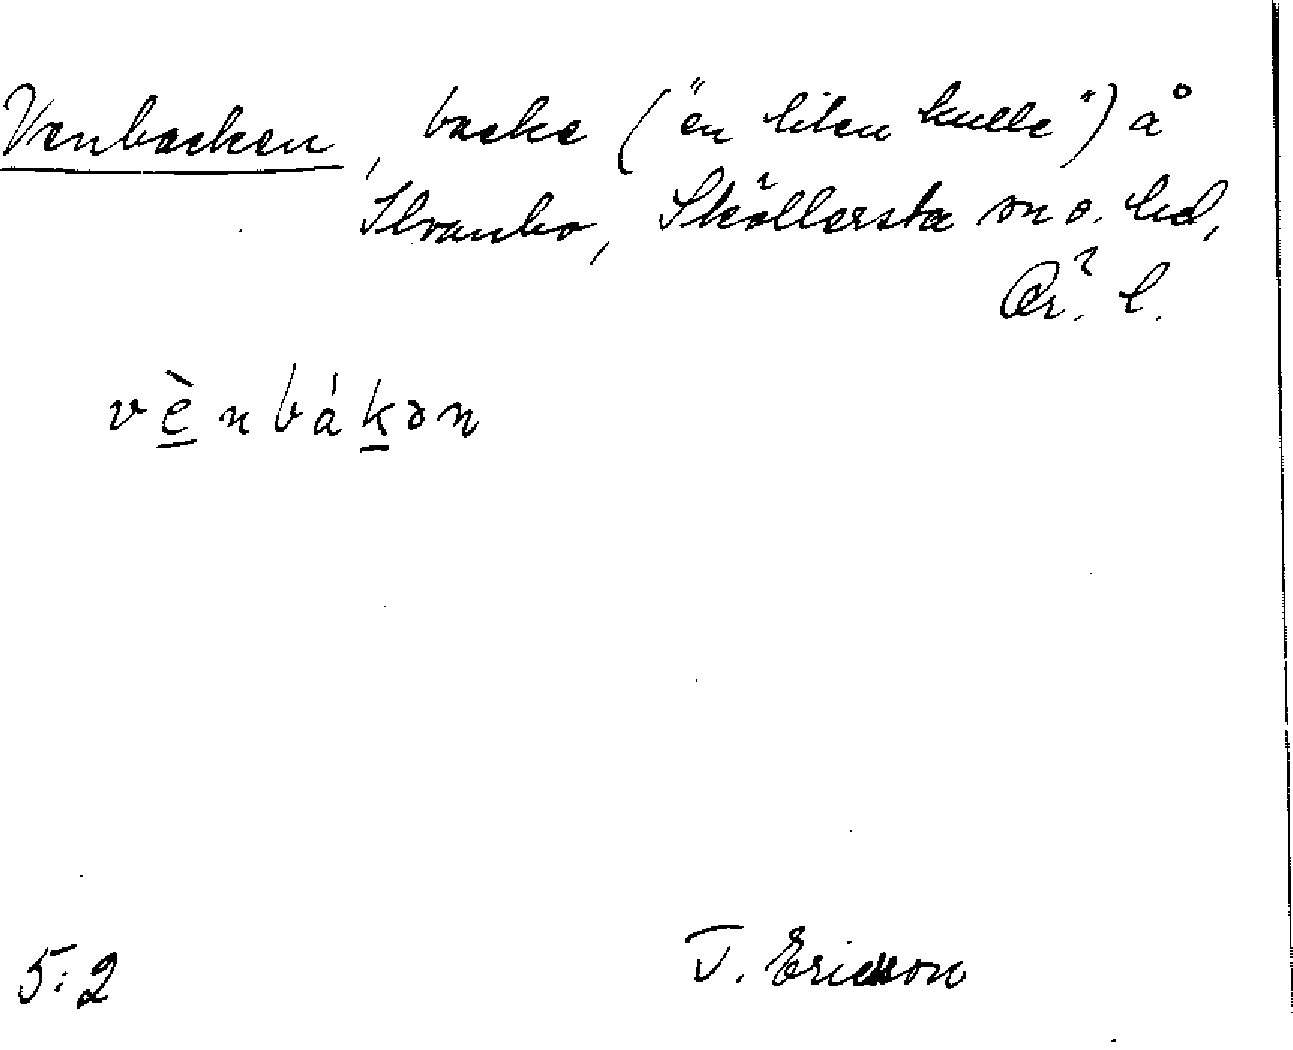 Venbacken, backe ("en liten kulle") å
Skölersta sn o. hd,
Ör. l.
vènbákən
5:2 T. Ericsson